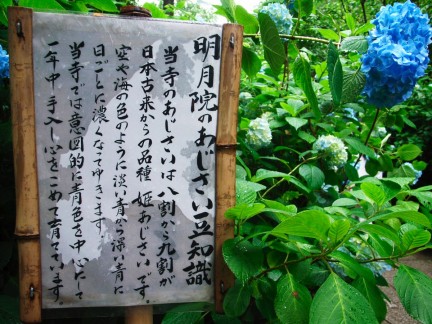 明月院のあじさい豆知識
当寺のあじさいは八割から九割が
日本古来からの品種「姫あじさい」です。
空や海の色のように淡い青から深い青に
日ごとに濃くなってゆきます
当寺では意図的に青色を中心にして
一年中手入し心をこめて育てています